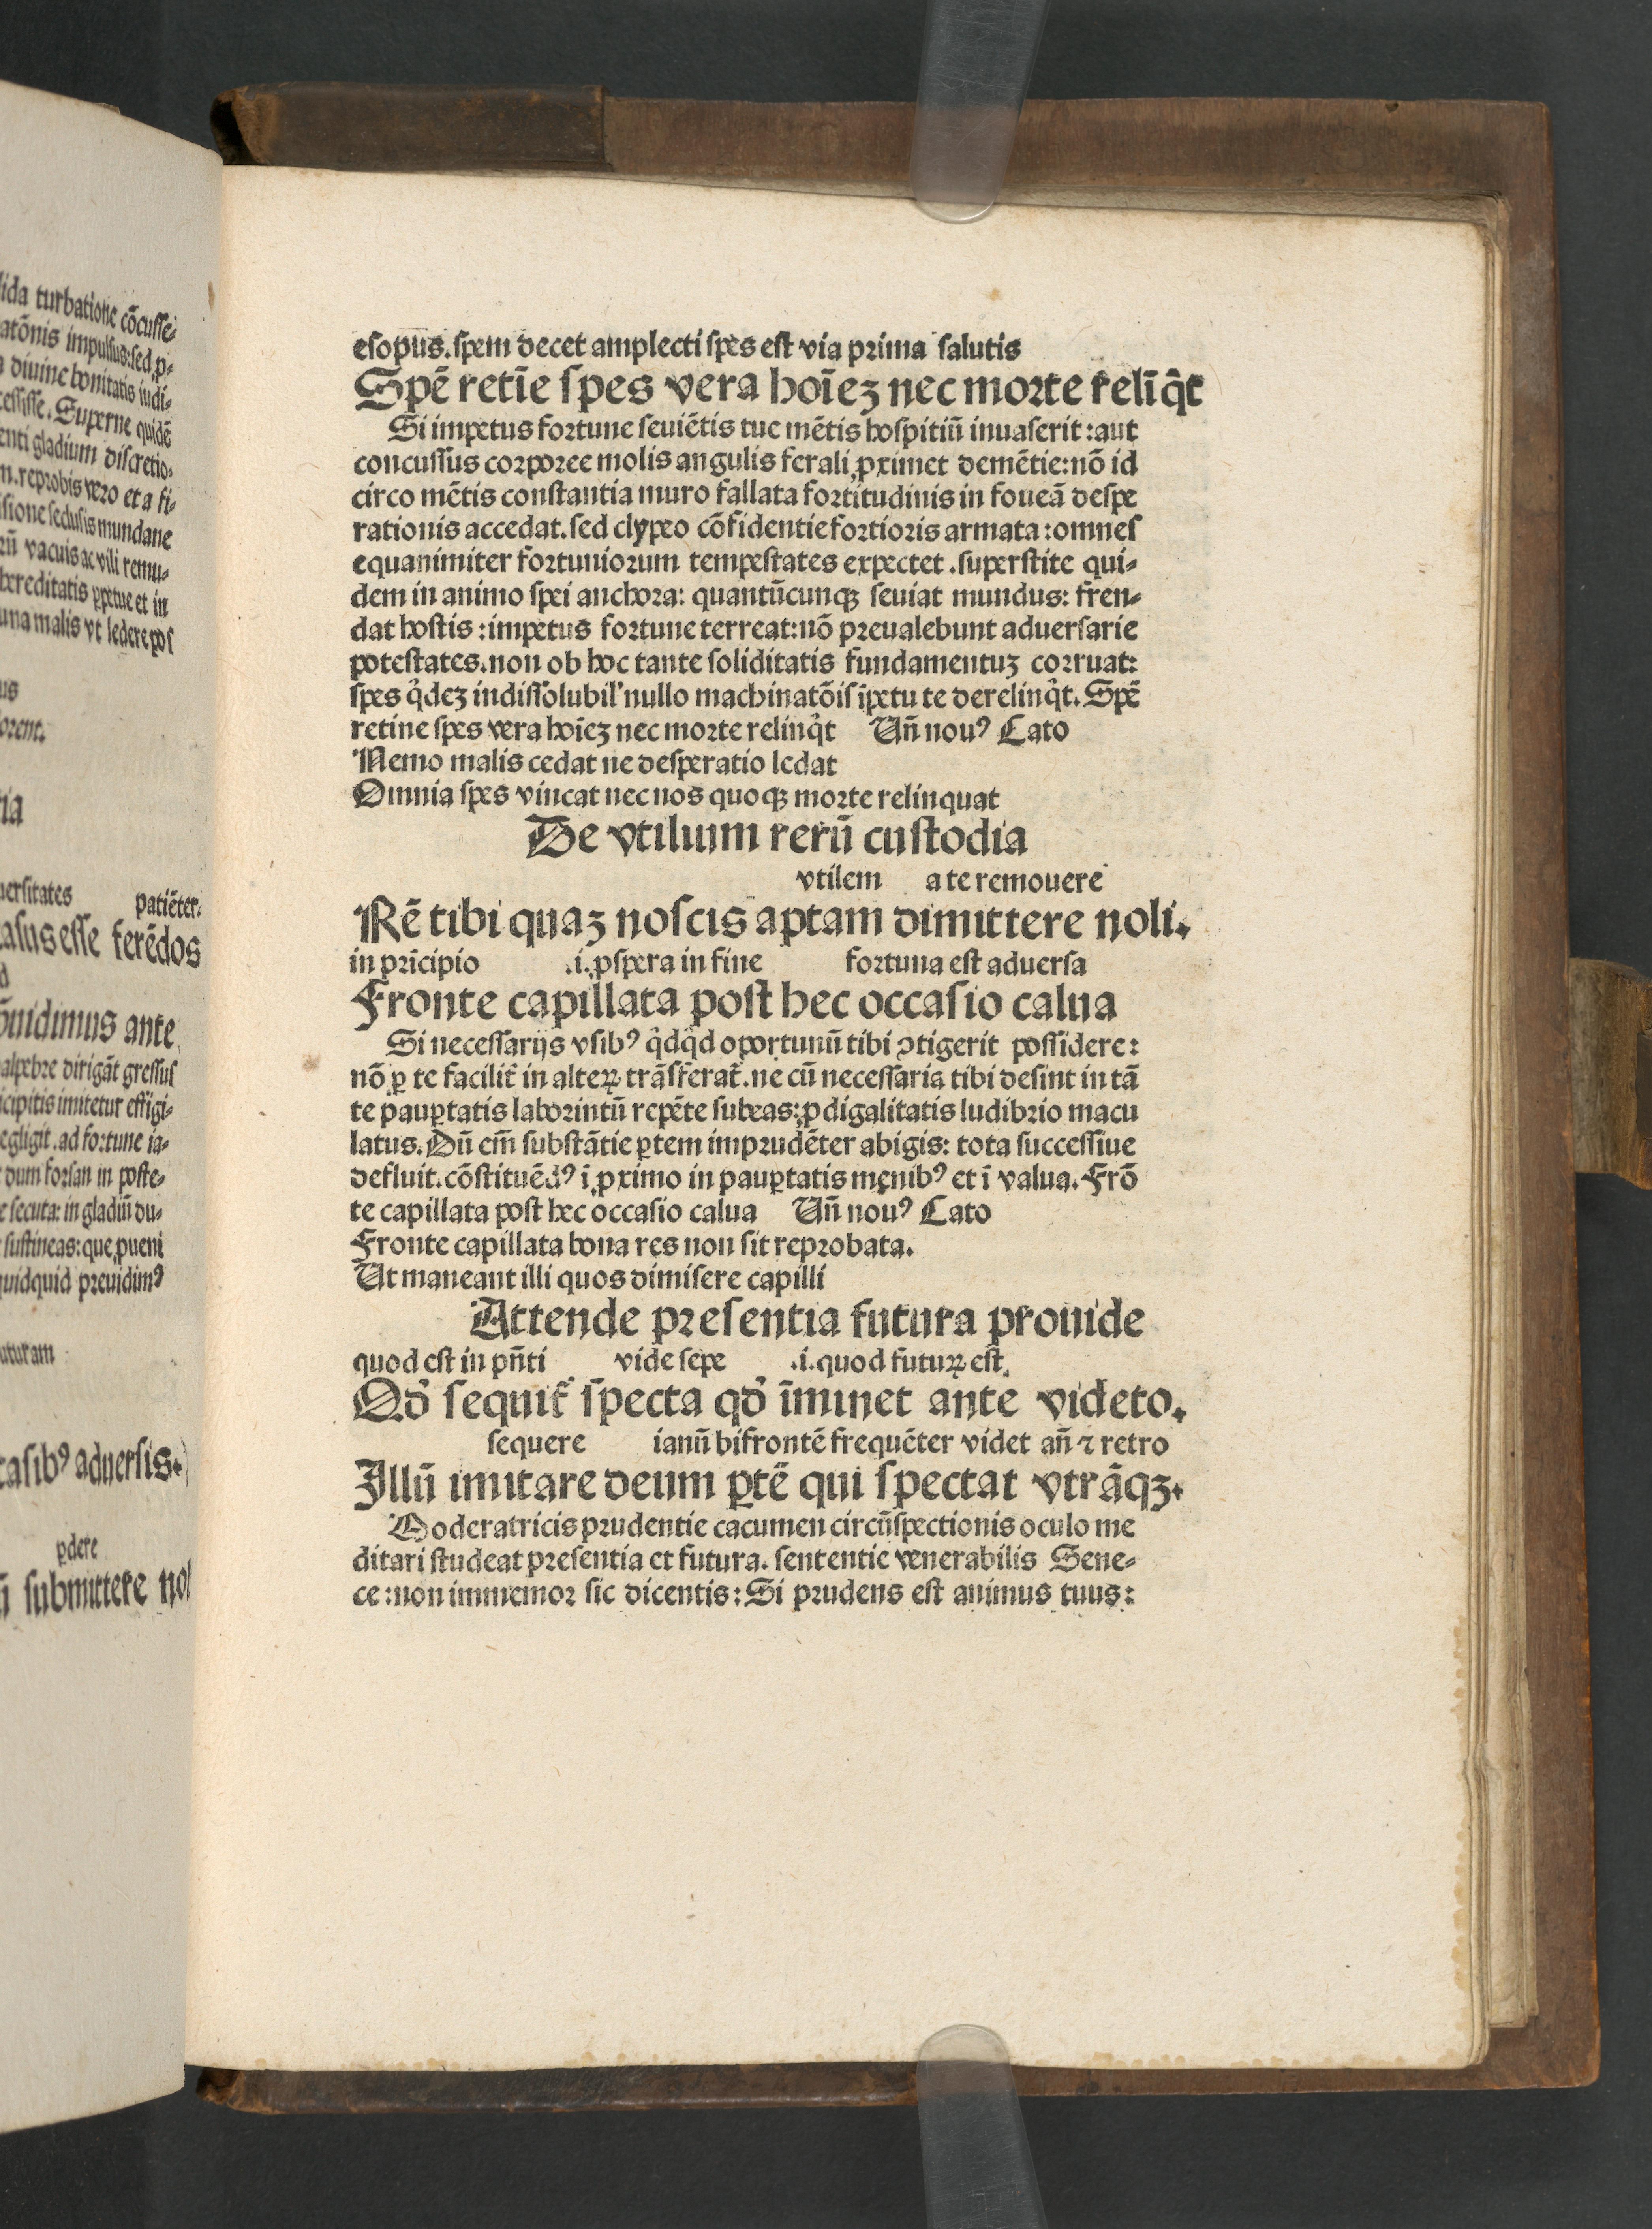 lida turbatione cōcuſſe⸗
atōnis impulſus:ſed ꝓ⸗
diuine bonitatis iudi⸗
ceſſiſſe. Superne quidē
enti gladium diſcretio⸗
m.reprobis vero et a fi⸗
ſione ſecluſis mundane
rū vacuis ac vili remu⸗
hereditatis ꝑpetue et in
una malis vt ledere poſ
us
orent.
ia
uerſitates patiēter.
caſus eſſe ferēdos
d
uidimus ante
alpebre dirigāt greſſuſ
icipitis imitetur effigi⸗
egligit.ad fortune ia⸗
dum forſan in poſte⸗
e ſecuta: in gladiū du⸗
ſuſtineas:que ꝓueni
quidquid preuidimꝰ
uturam
caſibꝰ aduerſis.
ꝑdere
ſubmittere nol
eſopus.ſpem decet amplecti ſpes eſt via prima ſalutis
Spē retīe ſpes vera hoīeꝫ nec morte relīqͥt
Si impetus fortune ſeuiētis tue mētis hoſpitiū inuaſerit:aut
concuſſus corporee molis angulis ferali ꝓximet demētie:nō id
circo mētis conſtantia muro fallata fortitudinis in foueā deſpe
rationis accedat.ſed clypeo cōfidentie fortioris armata:omneſ
equanimiter fortuniorum tempeſtates expectet.ſuperſtite qui⸗
dem in animo ſpei anchora: quantūcunqꝫ ſeuiat mundus: fren⸗
dat hoſtis:impetus fortune terreat:nō preualebunt aduerſarie
poteſtates.non ob hoc tante ſoliditatis fundamentuꝫ corruat:
ſpes qͥdeꝫ indiſſolubil' nullo machinatōiſ īpetu te derelinqͥt. Spē
retine ſpes vera hoīeꝫ nec morte relinqͥt Un̄ nouꝰ Cato
Nemo malis cedat ne deſperatio ledat
Omnia ſpes vincat nec nos quoqꝫ morte relinquat
De vtilium rerū cuſtodia
vtilem a te remouere
Rē tibi quaꝫ noſcis aptam dimittere noli.
in prīcipio .i.ꝓſpera in fine fortuna eſt aduerſa
Fronte capillata poſt hec occaſio calua
Si neceſſarijs vſibꝰ qͥdqͥd oportunū tibi ꝯtigerit poſſidere:
nō ꝑ te facilit̄ in alteꝝ trāſferat̄.ne cū neceſſaria tibi deſint in tā
te pauꝑtatis laborintū repēte ſubeas:ꝓdigalitatis ludibrio macu
latus.Dū em̄ ſubſtātie ꝑtem imprudēter abigis: tota ſucceſſiue
defluit.cōſtituēdꝰ ī ꝓximo in pauꝑtatis menibꝰ et ī valua.Frō
te capillata poſt hec occaſio calua Un̄ nouꝰ Cato
Fronte capillata bona res non ſit reprobata.
Ut maneant illi quos dimiſere capilli
Attende preſentia futura prouide
quod eſt in pn̄ti vide ſepe .i.quod futuꝝ eſt
Qd̓ ſequit̄ ſpecta qd̓ īminet ante videto.
ſequere ianū bifrontē frequēter videt an̄ ⁊ retro
Illū imitare deum ꝑtē qui ſpectat vtrāqꝫ.
Moderatricis prudentie cacumen circūſpectionis oculo me
ditari ſtudeat preſentia et futura. ſententie venerabilis Sene⸗
ce:non immemor ſic dicentis: Si prudens eſt animus tuus: